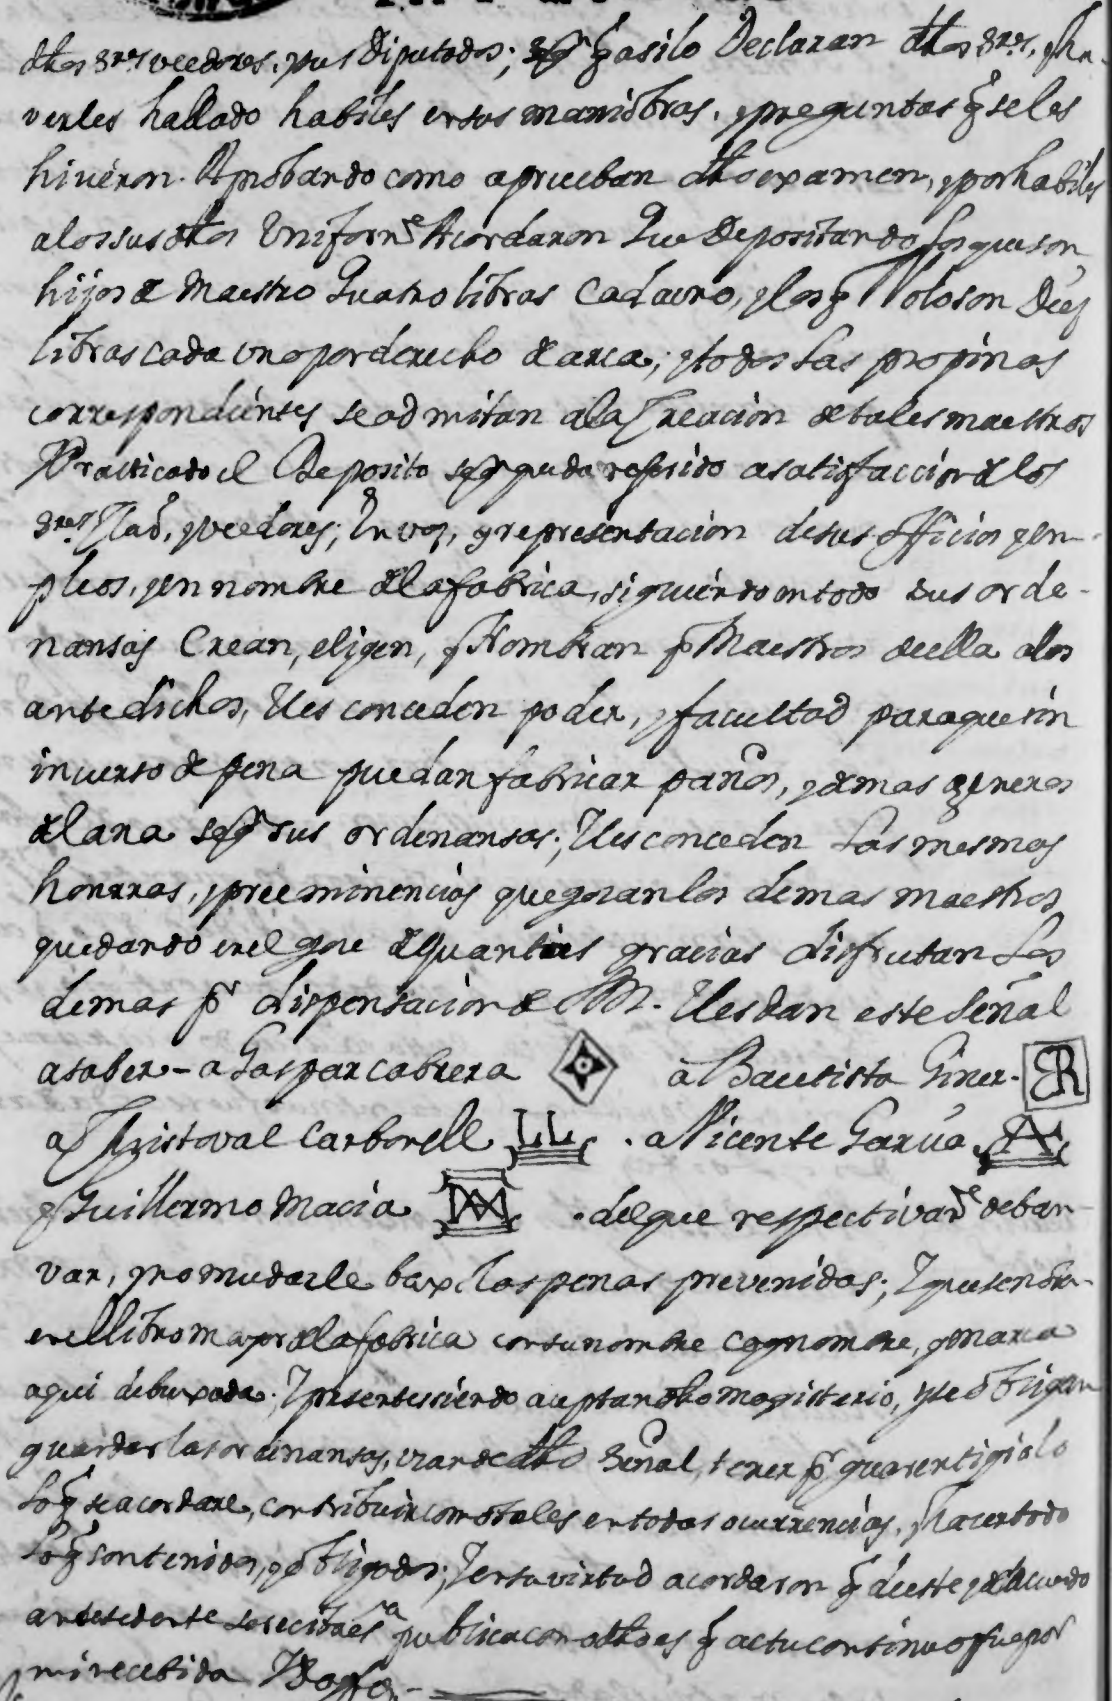 dhos Sres veedores, y sus Diputados; segn q asilo Declaran dhos Sres, y ha-
verles hallado habiles en sus maniobras, y preguntas q se les
hiuieron. Aprobando como aprueban dho examen, y por habiles
a los susdhos Uniforme Acordaron Que Depositando los que son
hijos de Maestro Quatro libras Cada uno, y los q No lo son Diez
libras cada uno por derecho de arca; y todos las propinas
correspondientes se admitan a la Creacion de tales maestros
Practicado el Deposito segn queda referido a satisfaccion de los
Sres Clad, y veedores; En voz, y representacion de sus officios y em-
pleos, y en nombre de la fabrica, siguiendo en todo sus orde-
nansas Crean, eligen, y Nombran p Maestros de ella a los
antedichos, Y les conceden poder, y facultad para que sin
incurso de pena puedan fabricar paños, y demas generos
de lana segn sus ordenansas; Y les conceden las mesmas
honrras, y preeminencias que gozan los demas maestros
quedando en el goze de quantas gracias disfrutan los
demas pr dispensacion de SM. Y les dan este Señal
a saber - a Gaspar Cabrera a Bautista Giner. ER
a Christoval Carbonell LL . a Vicente Garcia A
y Guillermo Macia M . del que respectivamte deban
var, y no mudarle baxo las penas prevenidas; Y que se
en el libro mayor de la fabrica con su nombre cognombre, y marca
aqui dibuxada; Y presentes siendo aceptan dho magisterio, y se obligan
guardar las ordinansas, usar de dho Señal, tener pr guarentigiado
lo q se acordare, contribuir como tales en todas ocurrencias, y hacer todo
lo q son tenidos, y obligados; Y en su virtud acordaron q de este y del Acuerdo
antesedente se recibiese publica como dho es q actu continuo fue por
mi recebida Y Doy fe -